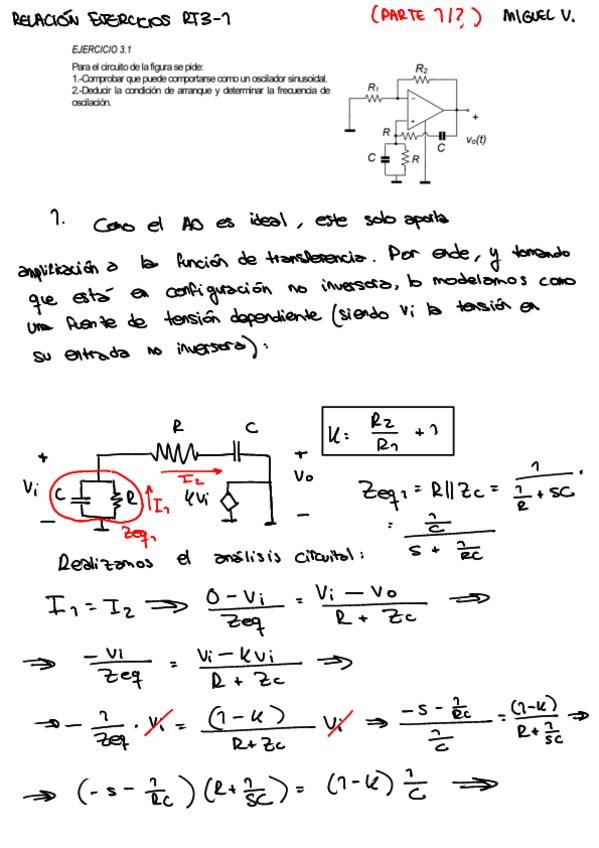 RELACIÓN EJERCICIOS RT3-1 (PARTE 1/?) MIGUEL V.
EJERCICIO 3.1
Para el circuito de la figura se pide:
1.-Comprobar que puede comportarse como un oscilador sinusoidal.
2.-Deducir la condición de arranque y determinar la frecuencia de
oscilación.
R₂
R₁
-
+
+
R
C
vₒ(t)
C
R
1. Como el AO es ideal, este solo aporta
amplificación a la función de transferencia. Por ende, y tomando
que está en configuración no inversora, lo modelamos como
una fuente de tensión dependiente (siendo Vi la tensión en
su entrada no inversora):
R C
K = R2/R1 + 1
+ I2 +
Vi C R I1 KVi Vo
- Zeq1 -
Zeq1 = R||Zc = 1/(1/R + SC) =
= (1/C)/(S + 1/RC)
Realizamos el análisis circuital:
I1 = I2 ⇒ (0 - Vi)/Zeq = (Vi - Vo)/(R + Zc) ⇒
⇒ -Vi/Zeq = (Vi - KVi)/(R + Zc) ⇒
⇒ - 1/Zeq · Vi = (1-K)/(R+Zc) Vi ⇒ (-S - 1/RC)/(1/C) = (1-K)/(R + 1/SC) ⇒
⇒ (-S - 1/RC)(R + 1/SC) = (1-K) 1/C ⇒